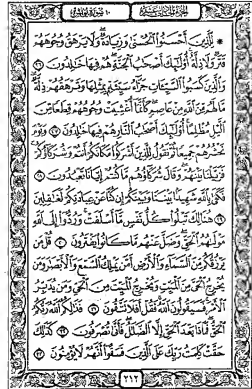 الجزء الحادي عشر ١٠ سورة يونس
۞ لِّلَّذِينَ أَحْسَنُوا۟ ٱلْحُسْنَىٰ وَزِيَادَةٌ وَلَا يَرْهَقُ وُجُوهَهُمْ
قَتَرٌ وَلَا ذِلَّةٌ أُو۟لَٰٓئِكَ أَصْحَٰبُ ٱلْجَنَّةِ هُمْ فِيهَا خَٰلِدُونَ ٢٦
وَٱلَّذِينَ كَسَبُوا۟ ٱلسَّيِّـَٔاتِ جَزَآءُ سَيِّئَةٍۭ بِمِثْلِهَا وَتَرْهَقُهُمْ ذِلَّةٌ
مَّا لَهُم مِّنَ ٱللَّهِ مِنْ عَاصِمٍ كَأَنَّمَآ أُغْشِيَتْ وُجُوهُهُمْ قِطَعًا مِّنَ
ٱلَّيْلِ مُظْلِمًا أُو۟لَٰٓئِكَ أَصْحَٰبُ ٱلنَّارِ هُمْ فِيهَا خَٰلِدُونَ ٢٧ وَيَوْمَ
نَحْشُرُهُمْ جَمِيعًا ثُمَّ نَقُولُ لِلَّذِينَ أَشْرَكُوا۟ مَكَانَكُمْ أَنتُمْ وَشُرَكَآؤُكُمْ
فَزَيَّلْنَا بَيْنَهُمْ وَقَالَ شُرَكَآؤُهُم مَّا كُنتُمْ إِيَّانَا تَعْبُدُونَ ٢٨
فَكَفَىٰ بِٱللَّهِ شَهِيدًۢا بَيْنَنَا وَبَيْنَكُمْ إِن كُنَّا عَنْ عِبَادَتِكُمْ لَغَٰفِلِينَ
٢٩ هُنَالِكَ تَبْلُوا۟ كُلُّ نَفْسٍ مَّآ أَسْلَفَتْ وَرُدُّوٓا۟ إِلَى ٱللَّهِ
مَوْلَىٰهُمُ ٱلْحَقِّ وَضَلَّ عَنْهُم مَّا كَانُوا۟ يَفْتَرُونَ ٣٠ قُلْ مَن
يَرْزُقُكُم مِّنَ ٱلسَّمَآءِ وَٱلْأَرْضِ أَمَّن يَمْلِكُ ٱلسَّمْعَ وَٱلْأَبْصَٰرَ وَمَن
يُخْرِجُ ٱلْحَىَّ مِنَ ٱلْمَيِّتِ وَيُخْرِجُ ٱلْمَيِّتَ مِنَ ٱلْحَىِّ وَمَن يُدَبِّرُ
ٱلْأَمْرَ فَسَيَقُولُونَ ٱللَّهُ فَقُلْ أَفَلَا تَتَّقُونَ ٣١ فَذَٰلِكُمُ ٱللَّهُ رَبُّكُمُ
ٱلْحَقُّ فَمَاذَا بَعْدَ ٱلْحَقِّ إِلَّا ٱلضَّلَٰلُ فَأَنَّىٰ تُصْرَفُونَ ٣٢ كَذَٰلِكَ
حَقَّتْ كَلِمَتُ رَبِّكَ عَلَى ٱلَّذِينَ فَسَقُوٓا۟ أَنَّهُمْ لَا يُؤْمِنُونَ ٣٣
٢١٢